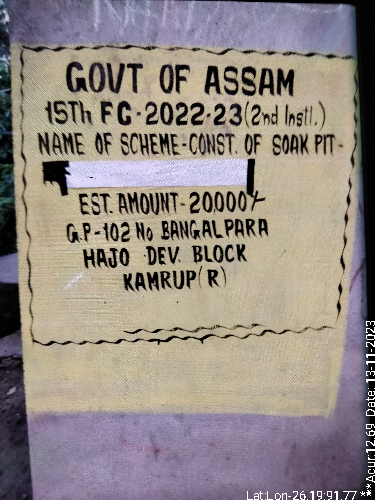 GOVT OF ASSAM
15Th FC-2022-23(2nd Instl.)
NAME OF SCHEME-CONST. OF SOAK PIT-
EST. AMOUNT-20,000/-
G.P-102 No BANGALPARA
HAJO DEV. BLOCK
KAMRUP(R)
Lat:Lon-26.19:91.77 *** Acur:12.69 Date: 13-11-2023